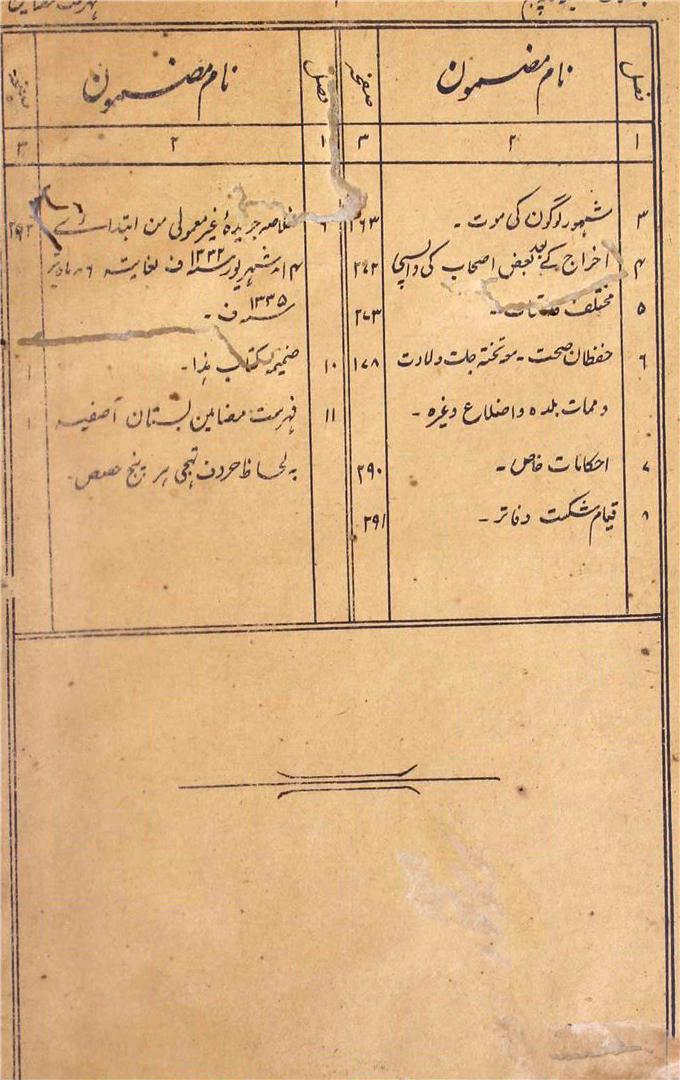 فصل
نام مضمون
صفحہ
۱
۲
۳
۳ مشہور لوگوں کی موت ۔
۴ اخراج کے بعد بعض اصحاب کی واپسی ۲۷۲
۵ مختلف ۲۷۳
۶ حفظان صحت ۔ مع تختہ جات ولادت ۱۷۸
و ممات بلدہ و اضلاع وغیرہ ۔
۷ احکامات خاص ۔ ۲۹۰
۸ قیام شکست دفاتر ۔ ۲۹۱
فصل
نام مضمون
صفحہ
۱
۲
۳
خلاصہ جریدۂ غیر معمولی من ابتدائے
شہریور ۱۳۳۲ ف لغایتہ
۱۳۳۵ ف ۔
۱۰ ضمیمہ کتاب ہذا ۔ ۱
۱۱ فہرست مضامین بستان آصفیہ ۱
بہ لحاظ حروف تہجی ہر پنج حصص ۔